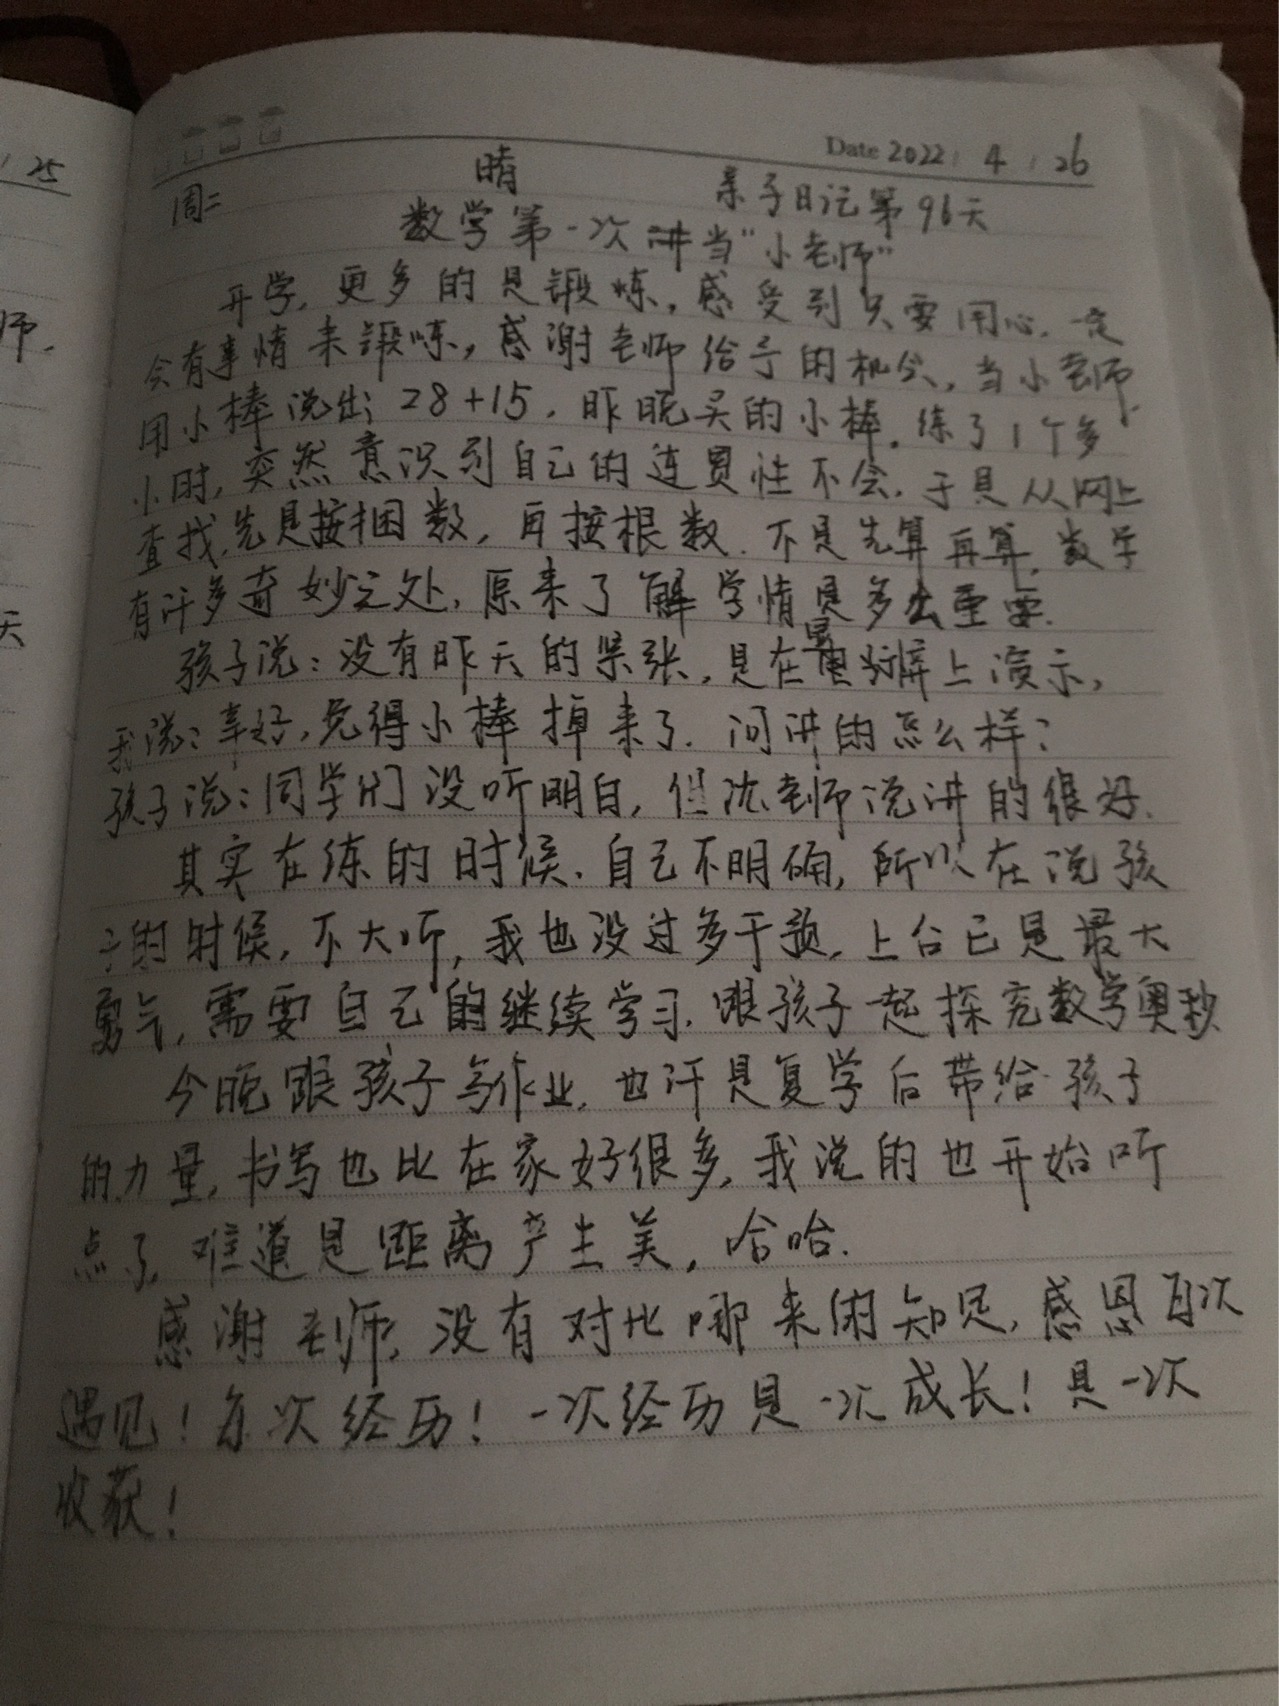 Date 2022 / 4 / 26
/ 25
周二 晴 亲子日记第96天
数学第一次讲当“小老师”
开学,更多的是锻炼,感受到只要用心,一定
会有事情来锻炼,感谢老师给予的机会,当小老师,
师,
用小棒说出 28+15,昨晚买的小棒,练了1个多
小时,突然意识到自己的连贯性不会,于是从网上
查找,先是按捆数,再按根数.不是先算再算,数学
有许多奇妙之处,原来了解学情是多么重要.
天
孩子说:没有昨天的紧张,是在黑屏上演示,
我说:幸好,免得小棒掉来了.问讲的怎么样?
孩子说:同学们没听明白,但沈老师说讲的很好.
其实在练的时候,自己不明确,所以在说孩
子的时候,不大听,我也没过多干预,上台已是最大
勇气,需要自己的继续学习,跟孩子一起探究数学奥秒
今晚跟孩子写作业,也许是复学后带给孩子
的力量,书写也比在家好很多,我说的也开始听
点了,难道是距离产生美,哈哈.
感谢老师,没有对比哪来的知足,感恩每次
遇见!每次经历!一次经历是一次成长!是一次
收获!